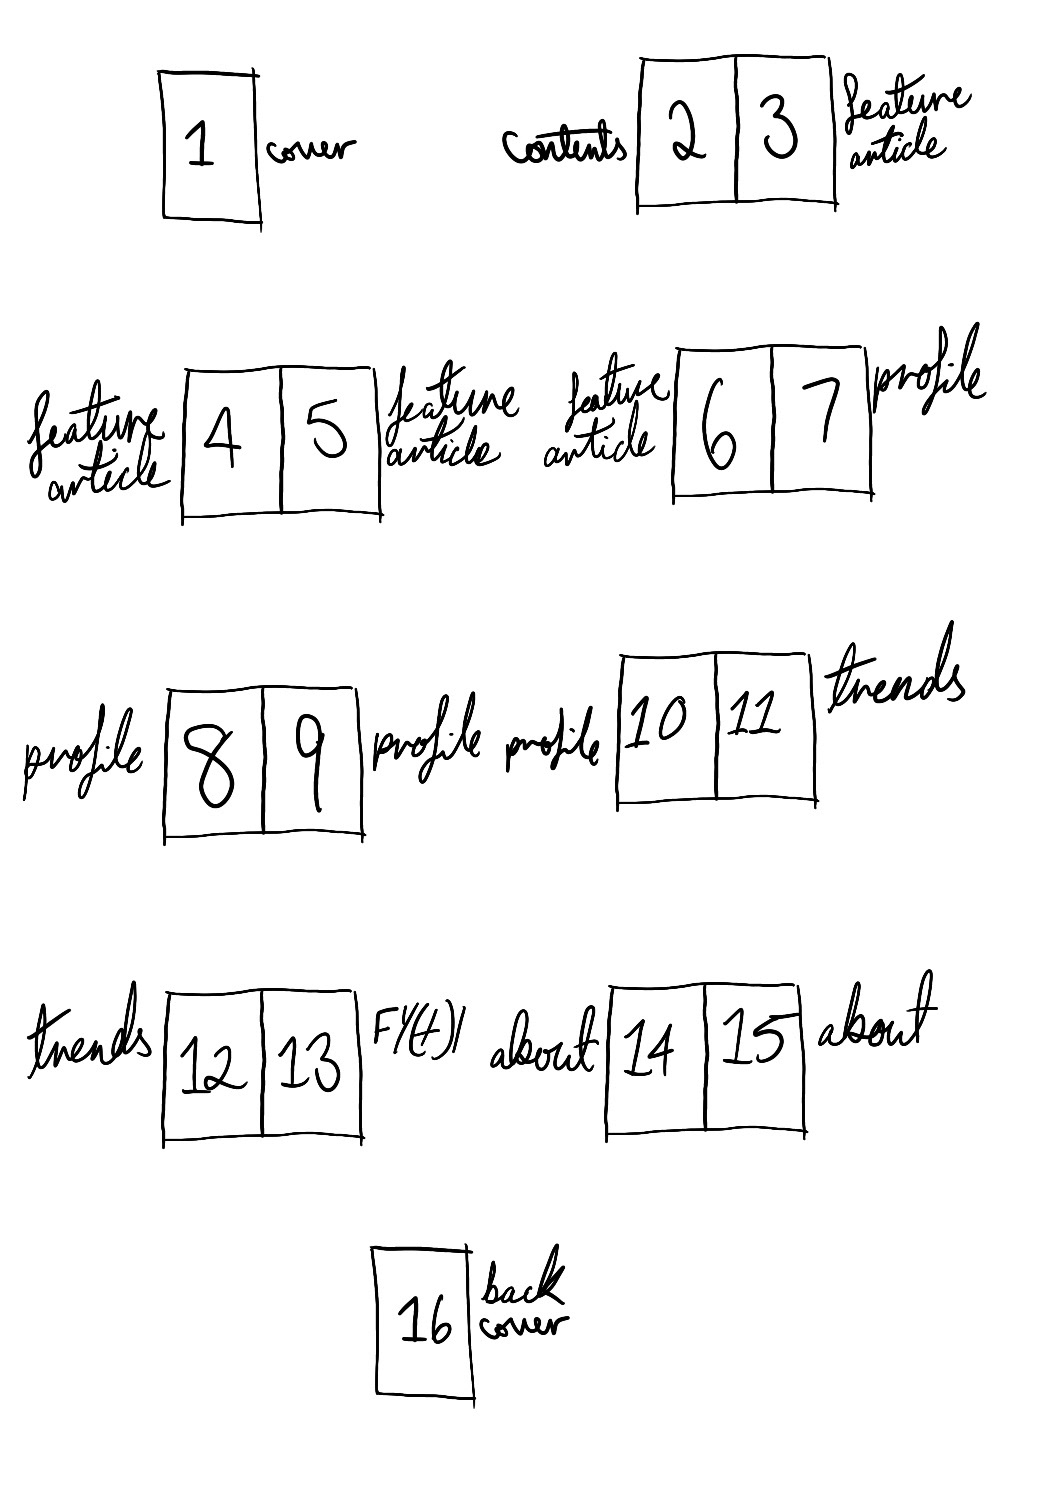 1 cover
contents 2 3 feature
article
feature
article 4 5 feature
article
feature
article 6 7 profile
profile 8 9 profile
profile 10 11 trends
trends 12 13
about 14 15 about
16 back
cover